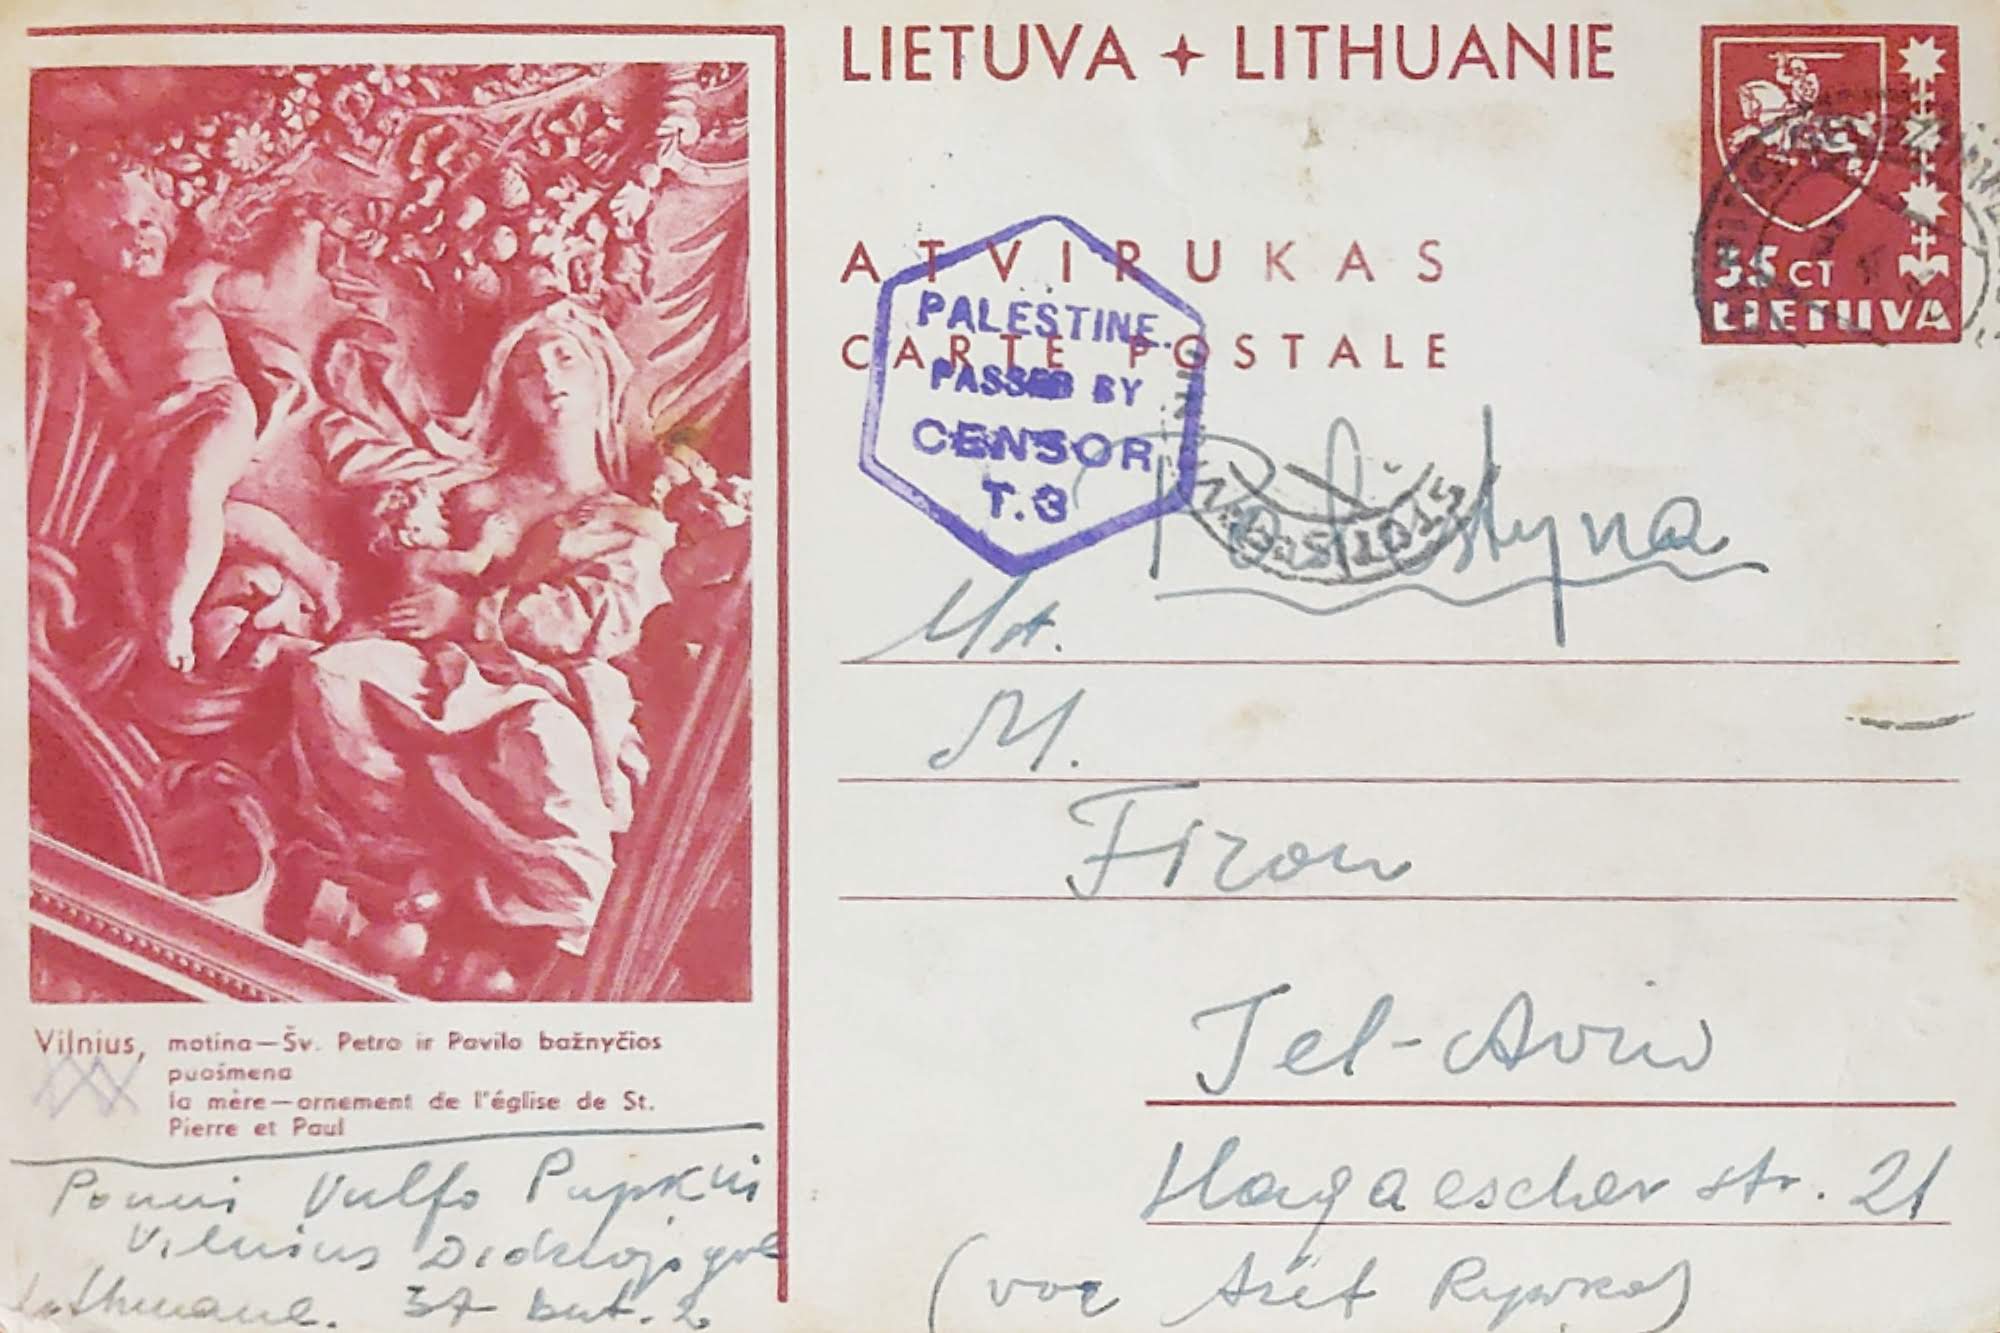 LIETUVA + LITHUANIE
35 CT
LIETUVA
ATVIRUKAS
CARTE POSTALE
PALESTINE.
PASSED BY
CENSOR
T.3
Palestyna
M.
Firon
Tel-Aviv
Hagaescher str. 21
Rywka)
Vilnius, motina—Šv. Petro ir Povilo bažnyčios
puošmena
la mère—ornement de l'église de St.
Pierre et Paul
Vulfo Pupkin
Vilnius
37 but. 2